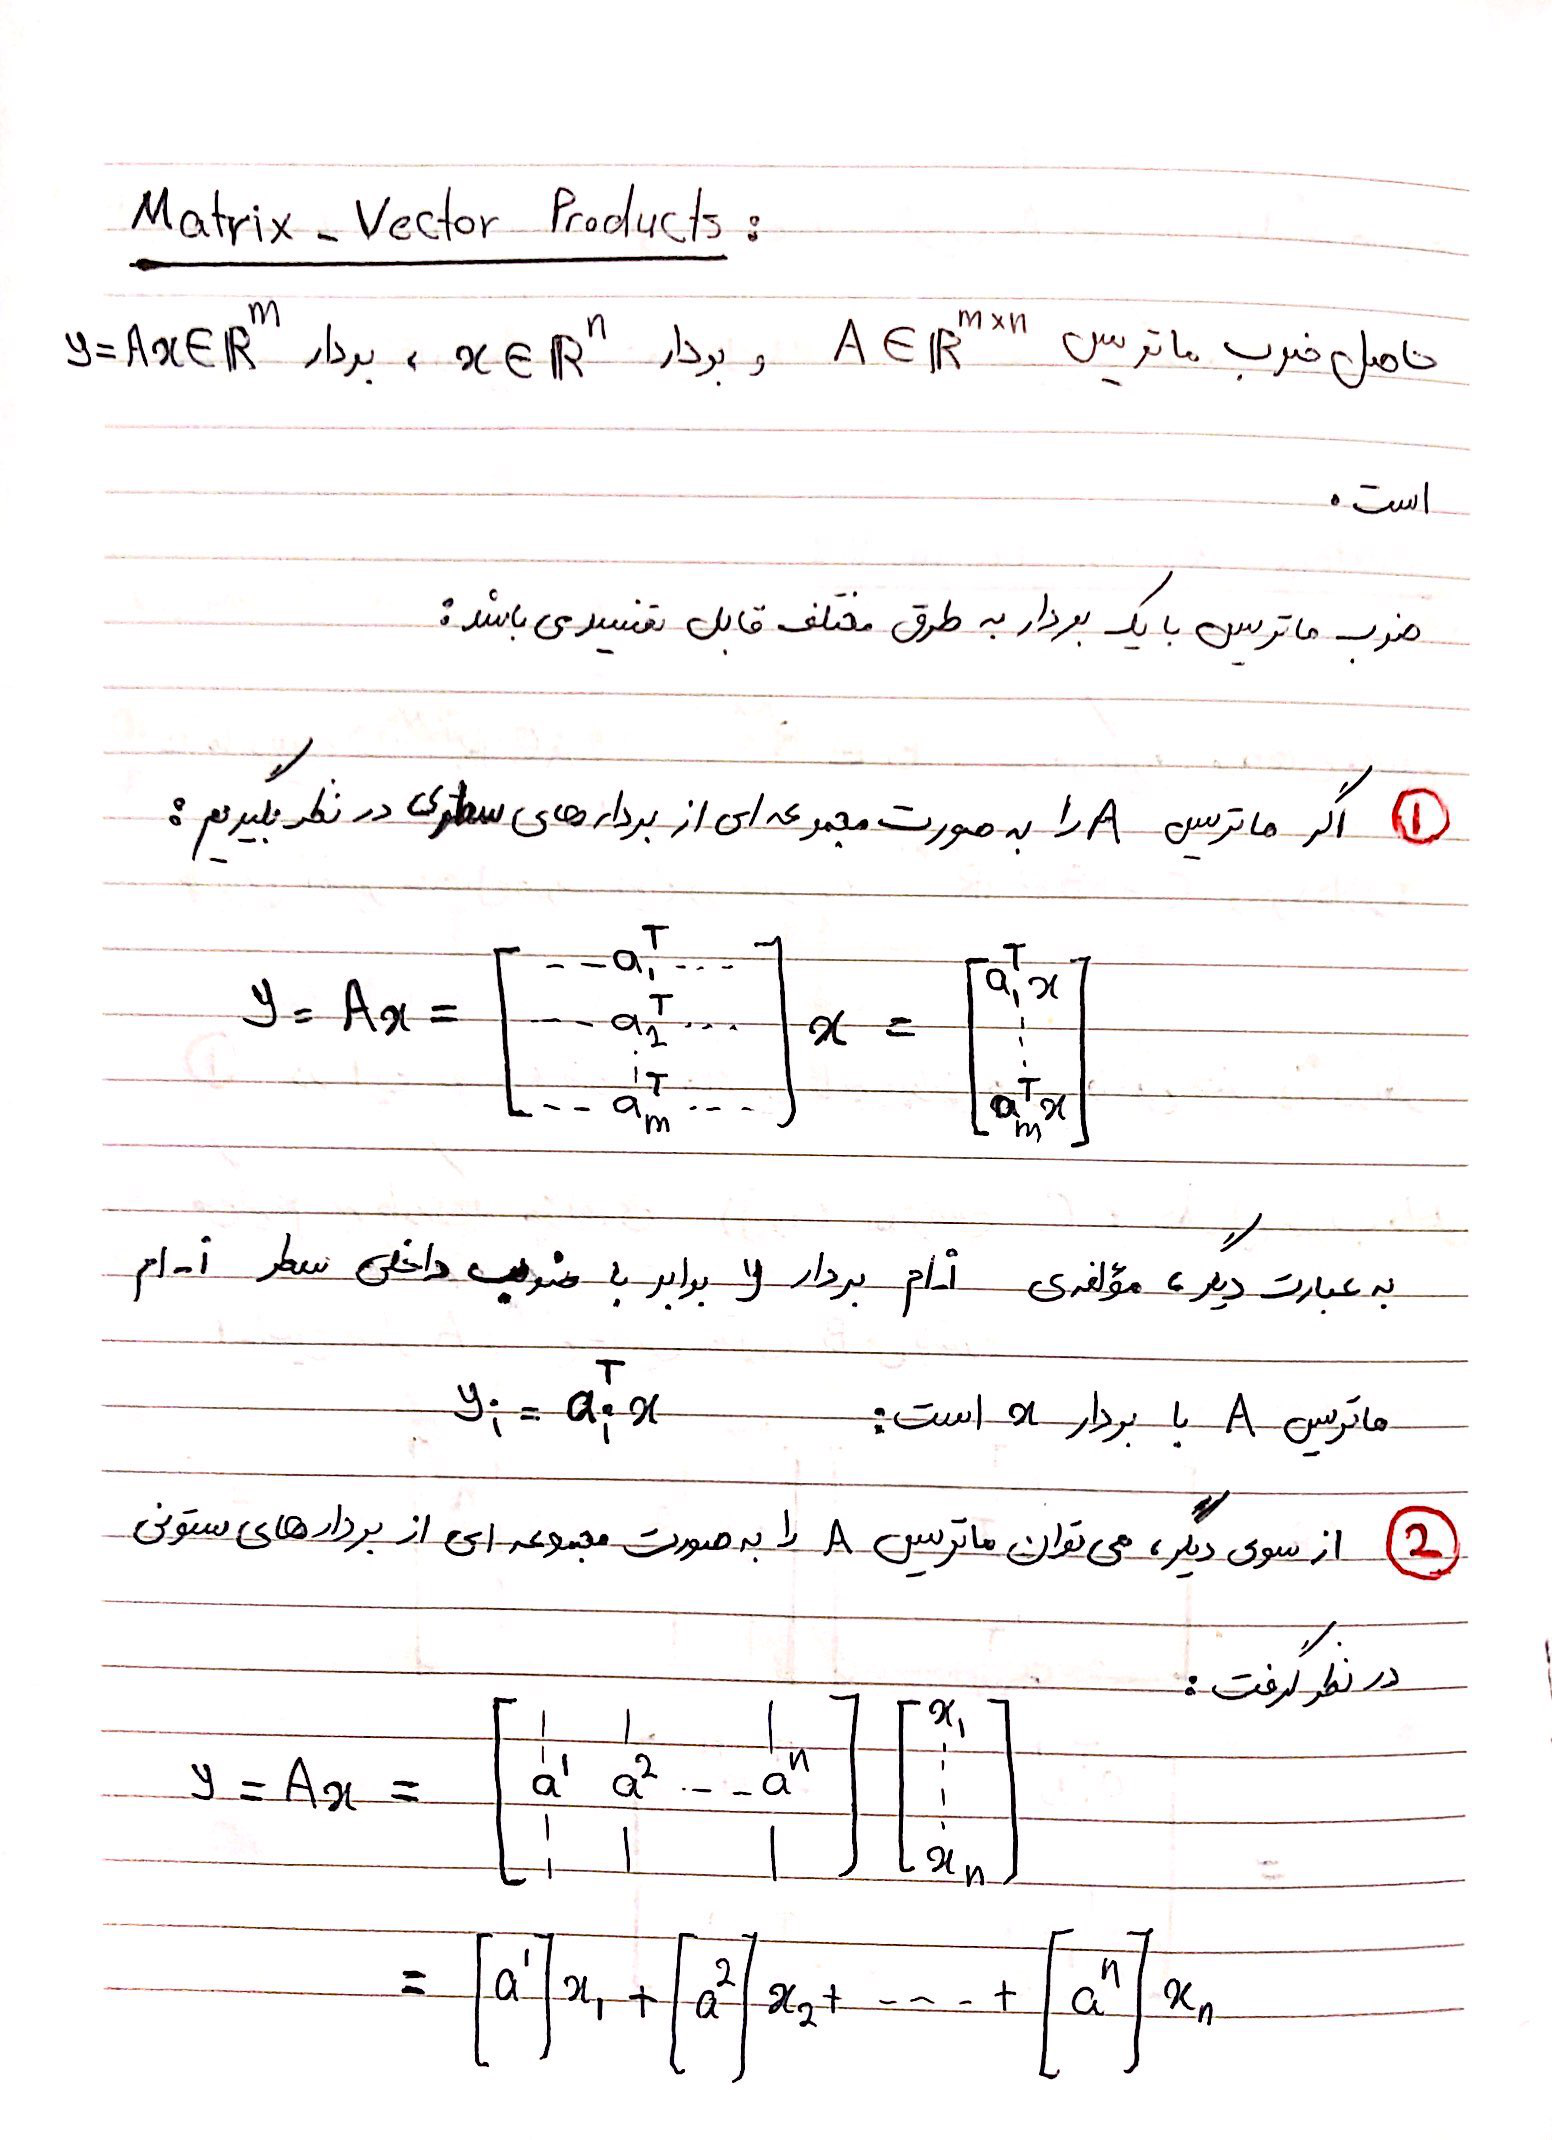 Matrix - Vector Products:
حاصل ضرب ماتریس A ∈ ℝ^{m×n} و بردار x ∈ ℝ^n ، بردار y = Ax ∈ ℝ^m
است.
ضرب ماتریس با یک بردار به طرق مختلف قابل تفسیر می باشد:
① اگر ماتریس A را به صورت مجموعه ای از بردارهای سطری در نظر بگیریم:
y = Ax = [ --a_1^T--- ; ---a_2^T... ; ⋮ ; --a_m^T--- ] x = [ a_1^T x ; ⋮ ; a_m^T x ]
به عبارت دیگر، مؤلفه ی i-ام بردار y برابر با ضرب داخلی سطر i-ام
ماتریس A با بردار x است: y_i = a_i^T x
② از سوی دیگر، می توان ماتریس A را به صورت مجموعه ای از بردارهای ستونی
در نظر گرفت:
y = Ax = [ | | | ; a^1 a^2 ... a^n ; | | | ] [ x_1 ; ⋮ ; x_n ]
= [a^1] x_1 + [a^2] x_2 + ---- + [a^n] x_n